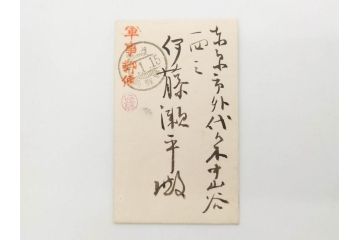 東京市外代々木山谷
一四三
伊藤瀬平殿
軍事郵便
1.15